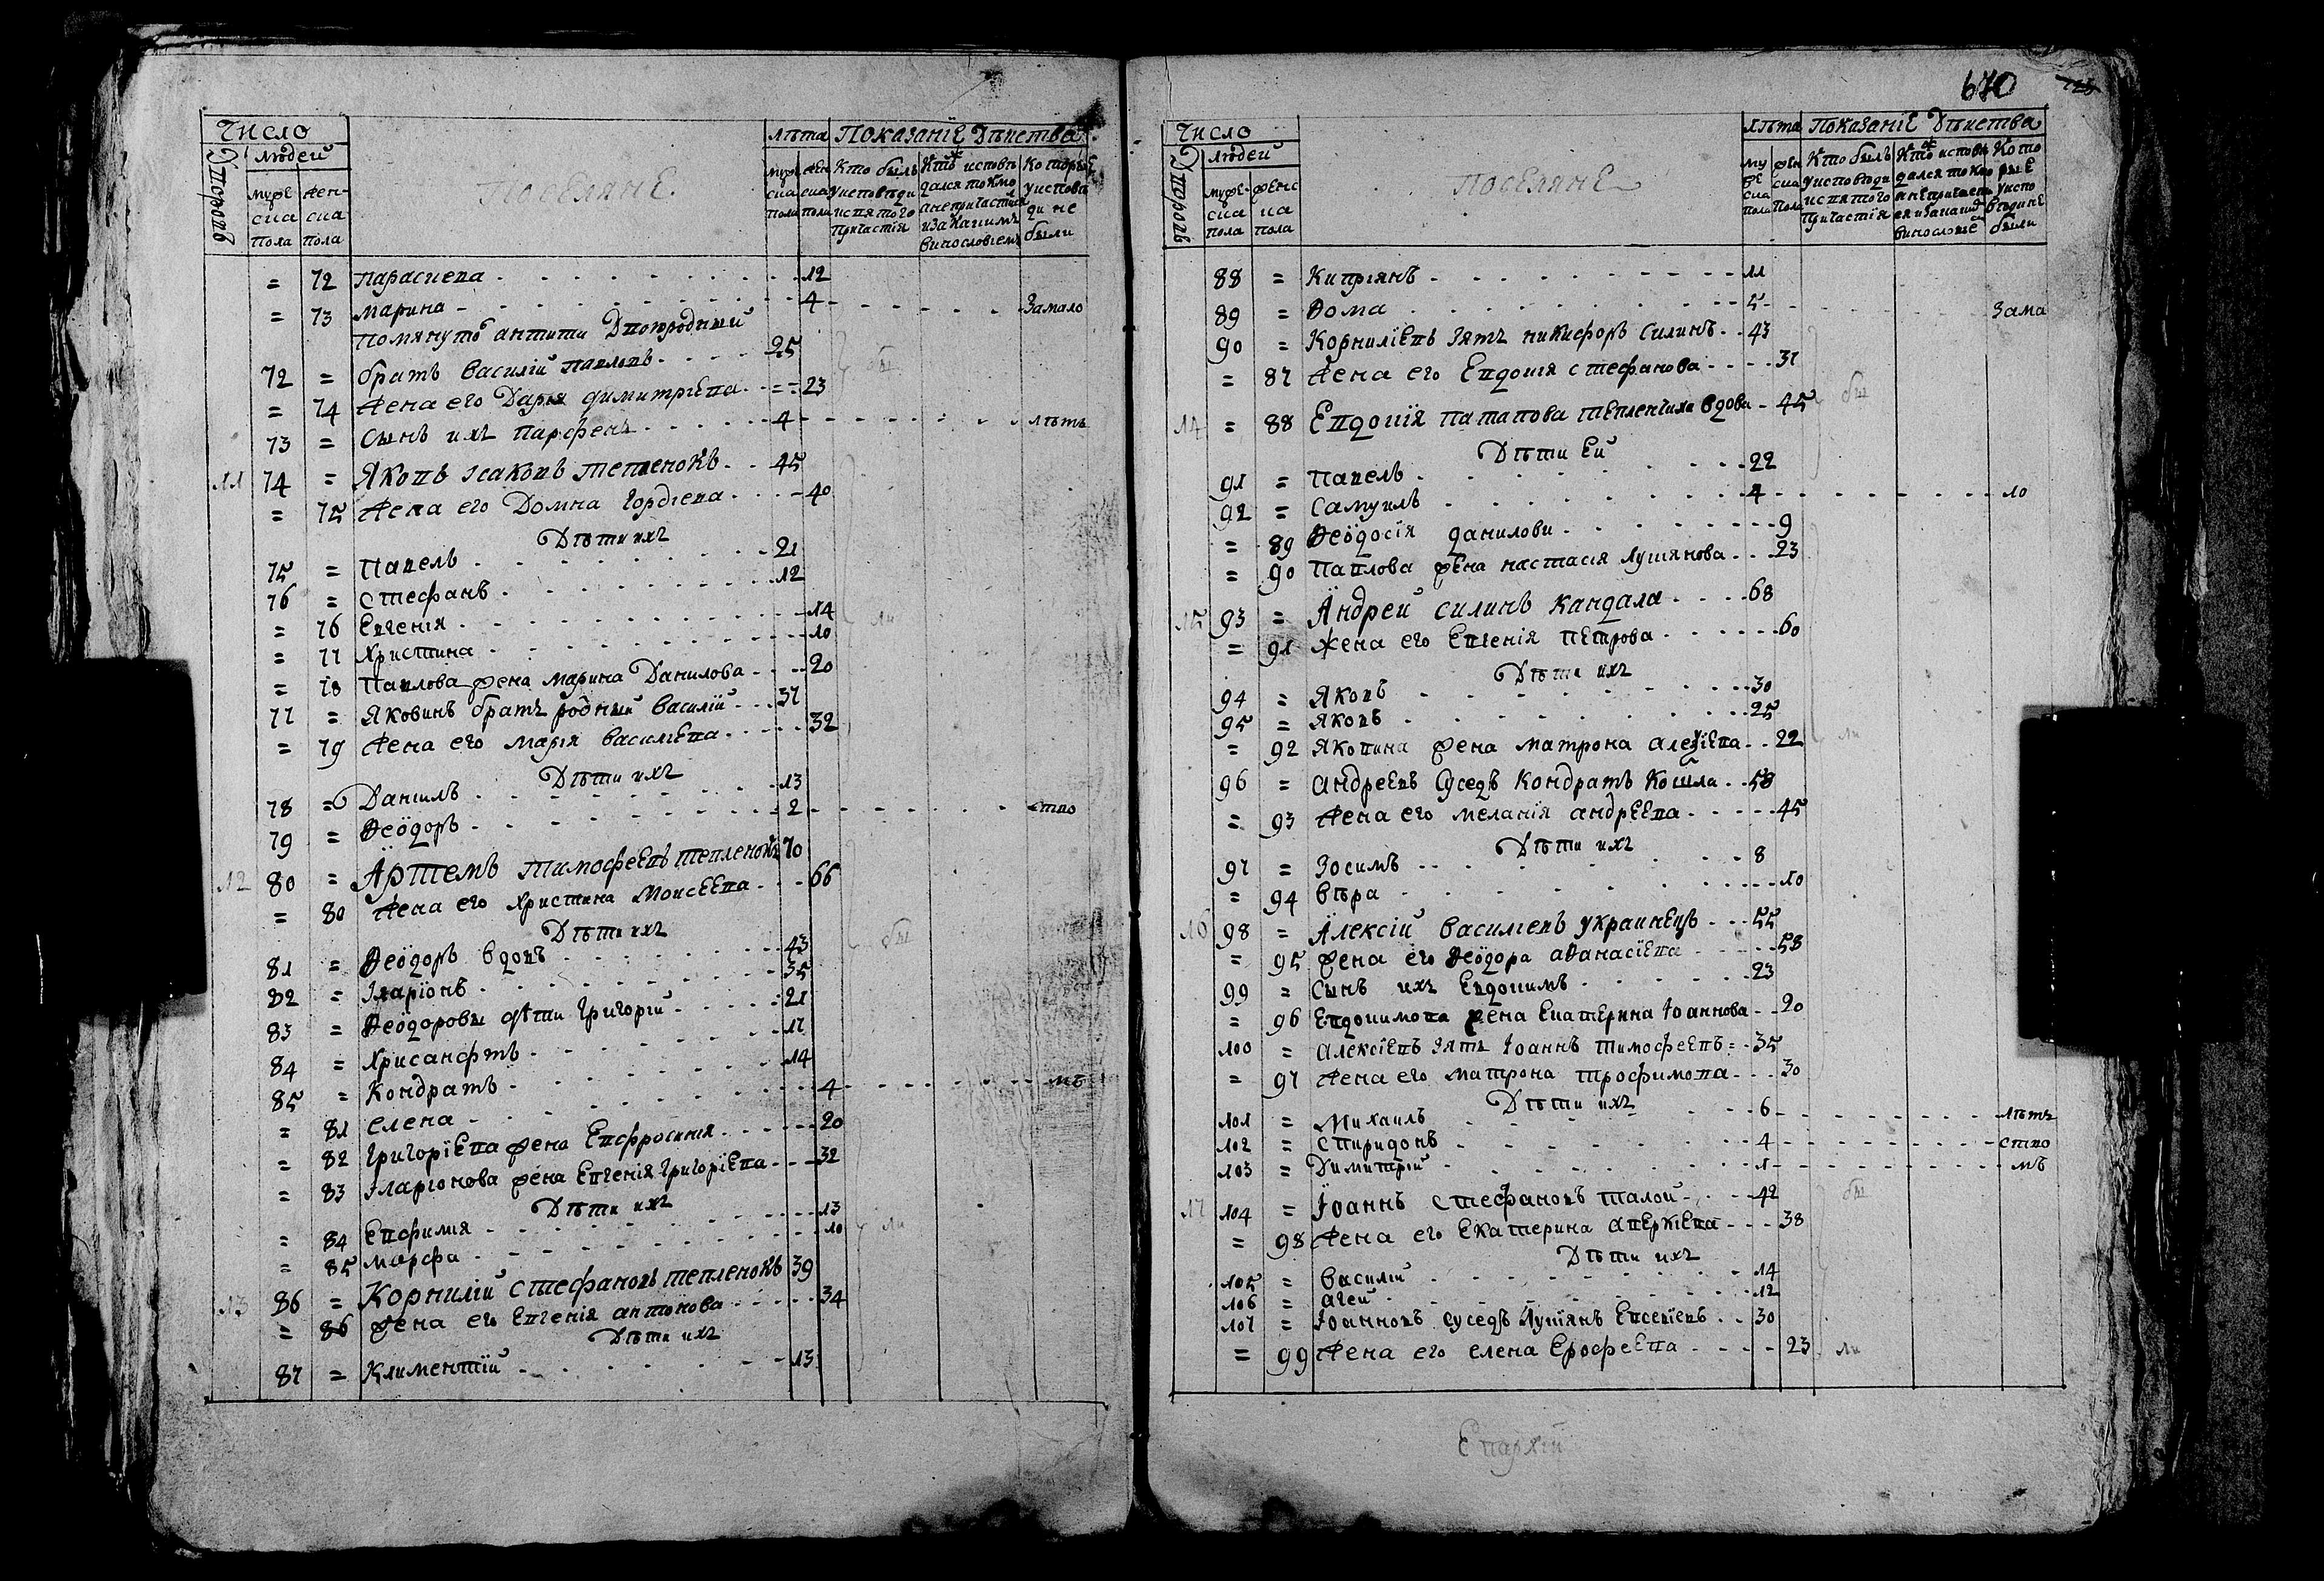 Число
Дворовъ
людей
муже
ска
пола
жен-
ска
пола
Поселяне
лѣта
муже
ска
пола
жен
ска
пола
Показаніе Дѣиства
Кто былъ
у исповѣди
и святого
причастія
Кто исповѣ
дался токмо
а не причастился
и за какимъ
винословіемъ
Которые
у испове
ди не
были
= 72 параскева 12
= 73 марина 4 За мало
помянуто антипи Двоюродный
72 = братъ василій павловъ 25 бы
= 74 жена его Дарія димитріева 23
73 = Сынъ ихъ парфенъ 4 лѣтъ
11 74 = Яковъ Ісаковъ тепленокъ 45
= 75 жена его Домна гордіева 40
Дѣти ихъ
75 = Павелъ 21
76 = Стефанъ 12
= 76 Евгенія 14 ли
= 77 Христина 10
= 78 Павлова жена марина Данилова 20
77 = Яковинъ братъ родный василій 37
= 79 жена его марія василіева 32
Дѣти ихъ
78 = Даніилъ 13
79 = Ѳеодоръ 2 ство
12 80 = Артемъ тимофеевъ тепленокъ 70
= 80 жена его христина Моисеева 66
Дѣти ихъ бы
81 = Ѳеодоръ вдовъ 43
82 = Іларіонъ 35
83 = Ѳеодоровы дѣти григорій 21
84 = Хрисанфтъ 17
85 = Кондратъ 14
= 81 елена 4 мъ
= 82 григоріева жена Евфросинія 20
= 83 Іларіонова жена Евгенія григоріева 32
Дѣти ихъ
= 84 Евфимія 13 ли
= 85 марфа 10
13 86 = Корнилій Стефановъ тепленокъ 39
= 86 жена его Евгенія антонова 34
Дѣти ихъ
87 = Климентій 13
670
Число
Дворовъ
людей
муже-
ска
пола
женс
ка
пола
Поселяне
лѣта
му
же
ска
пола
жен
ска
пола
Показаніе Дѣиства
Кто былъ
у исповѣди
и святого
причастія
Кто исповѣ
дался токмо
винословіе
Кото
рые
у испо
вѣди не
были
88 = Кипріянъ 11
89 = Ѳома 5 За ма
90 = Корниліевъ зять никифоръ Силинъ 43
= 87 жена его Евдокія стефанова 37
14 = 88 Евдокія патапова тепленчиха вдова 45 бы
Дѣти Ей
91 = Павелъ 22
92 = Самуилъ 4 ло
= 89 Ѳеодосія данилови 9
= 90 Павлова жена настасія лукянова 23
15 93 = Андрей силинъ кандала 68
= 91 жена его Евгенія петрова 60
Дѣти ихъ
94 = Яковъ 30
95 = Яковъ 25
= 92 Яковина жена матрона алеѯіева 22 ли
96 = андреевъ суседъ кондратъ Кошла 58
= 93 жена его меланія андреева 45
Дѣти ихъ
97 = Зосимъ 8
= 94 вѣра 10
16 98 = Алексій василіевъ украинецъ 55
= 95 жена его Ѳеодора аѲанасіева 58
99 = Сынъ ихъ Евдокимъ 23
= 96 Евдокимова жена Екатерина Іоаннова 20
100 = алексіевъ зять Іоаннъ тимофеевъ 35
= 97 жена его матрона трофимова 30
Дѣти ихъ
101 = Михаилъ 6 лѣтъ
102 = Спиридонъ 4 ство
103 = Димитрій 1 мъ
17 104 = Іоаннъ стефановъ талой 42 бы
= 98 жена его Екатерина аверкіева 38
Дѣти ихъ
105 = василій 14
106 = агей 12
107 = Іоанновъ сусѣдъ лукіянъ Евсевіевъ 30
= 99 жена его елена Ерофеева 23 ли
Епархіи